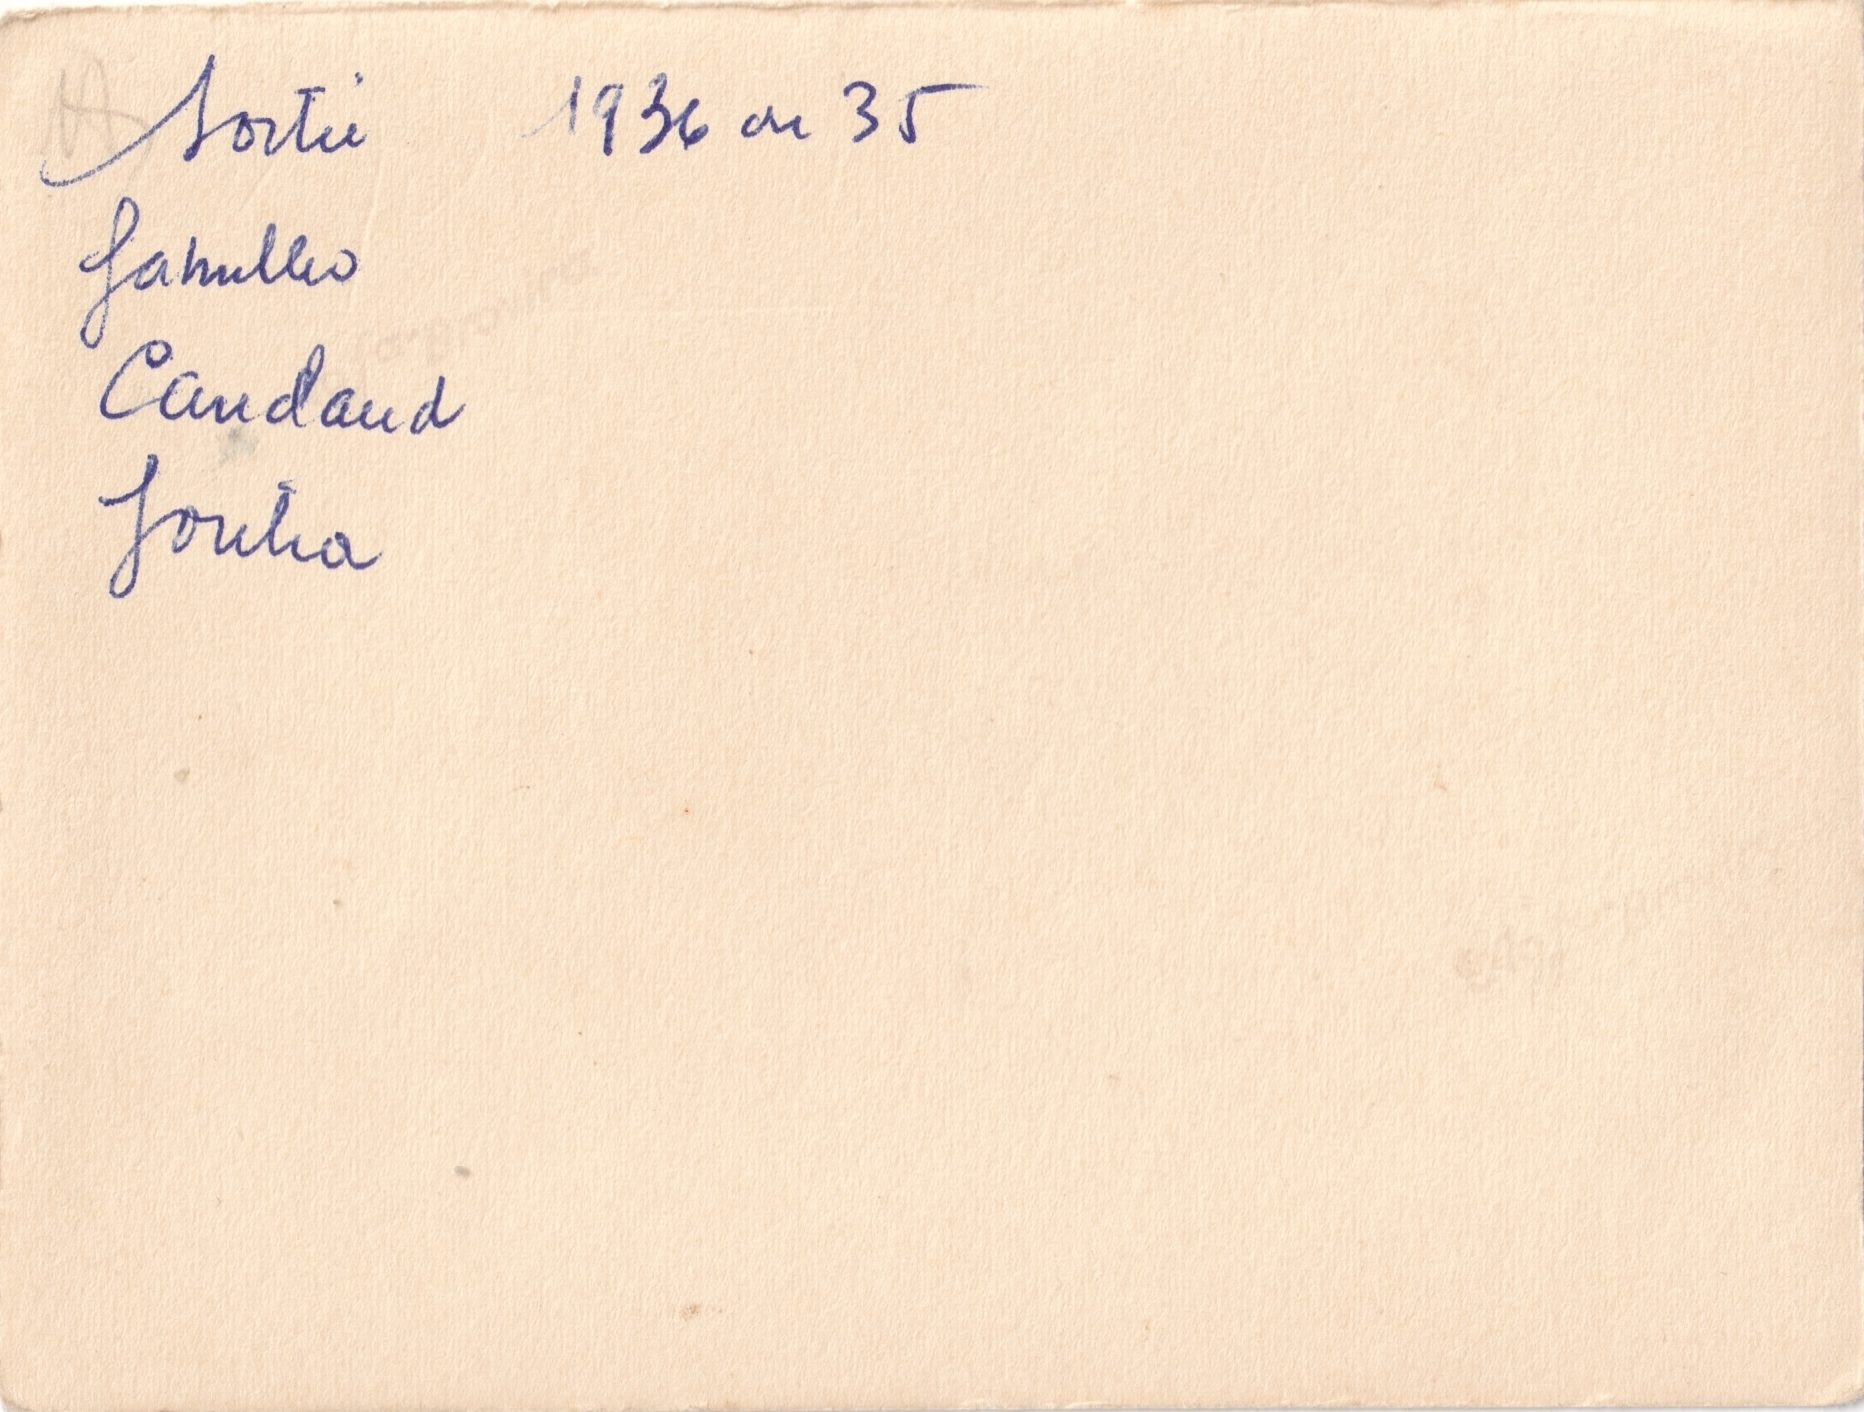 Sortie 1936 ou 35
familles
Candaud